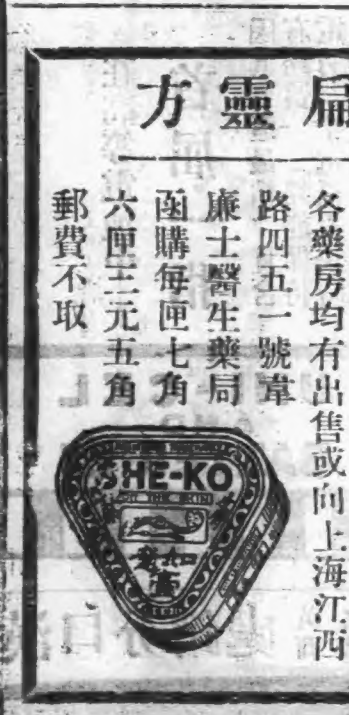 扁靈方
各藥房均有出售或向上海江西
路四五一號韋
廉士醫生藥局
函購每匣七角
六匣三元五角
郵費不取
SHE-KO
FOR THE SKIN
如意膏